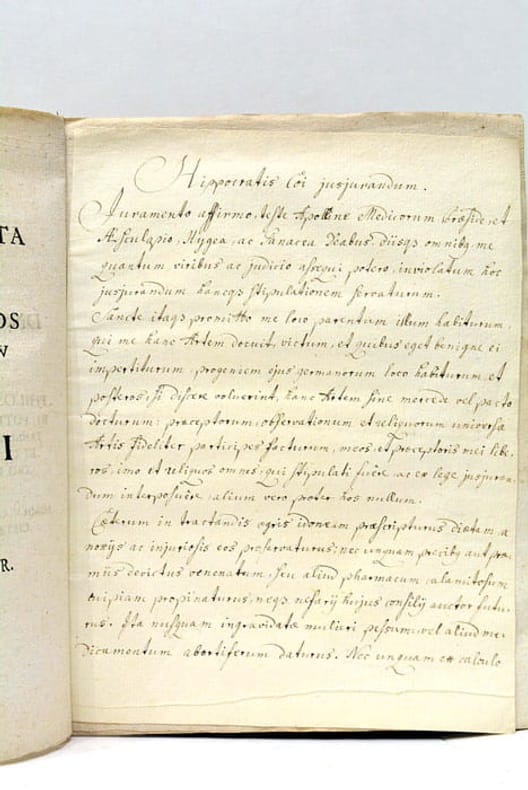 TA
OS
V
I
R.
Hippocratis Coi jusjurandum.
Juramento affirmo, teste Apolline Medicorum Præside, et
Æsculapio, Hygea, ac Panacea Deabus, diisq omnibq, me
quantum viribus ac judicio assequi potero, inviolatum hoc
jusjurandum hancq stipulationem servaturum.
Sancte itaq promitto me loco parentum illum habiturum,
qui me hanc Artem docuit, victum, et quibus eget benigne ei
impertiturum, progeniem ejus germanorum loco habiturum, et
posteros, si discere voluerint, hanc Artem sine mercede vel pacto
docturum; præceptorum, observationum et reliquorum universæ
Artis fideliter participes facturum, meos, et præceptoris mei libe-
ros, imo et reliquos omnes, qui stipulati fuere, ac ex lege jusjuran-
dum interposuere, alium vero præter hos nullum.
Cæterum in tractandis ægris idoneam præscripturus diætam, a
noxijs ac injuriosis eos præservaturus; nec unquam precibq aut præ-
miis devictus venenatum, seu aliud pharmacum calamitosum
cuipiam propinaturus, neqs nefarij hujus consilij auctor futu-
rus. Ita nusquam ingravidatæ mulieri pessum, vel aliud me-
dicamentum abortiferum daturus. Nec unquam ex calculo